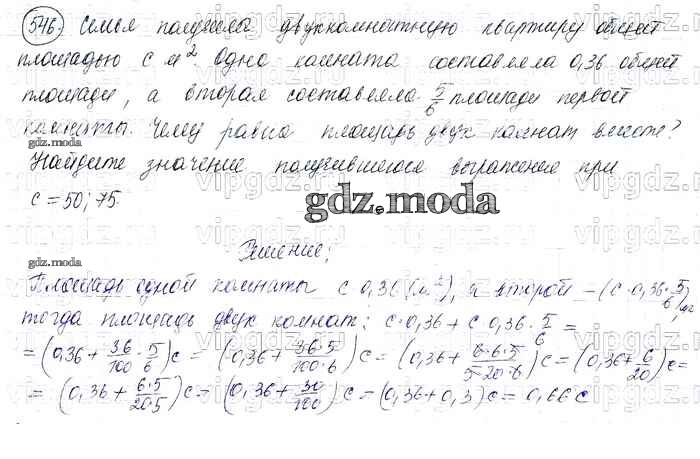 546. Семья получила двухкомнатную квартиру общей
площадью с м². Одна комната составляла 0,36 общей
площади, а вторая составляла 5/6 площади первой
комнаты. Чему равна площадь двух комнат вместе?
gdz.moda
Найдите значение получившегося выражения при
с = 50; 75.
gdz.moda
Решение:
gdz.moda
Площадь одной комнаты с 0,36 (м²), а второй – (с·0,36·5/6)м²
тогда площадь двух комнат: с·0,36 + с 0,36·5/6 =
= (0,36 + 36/100 · 5/6)с = (0,36 + 36·5/100·6)с = (0,36 + 6·6·5/5·20·6)с = (0,36 + 6/20)с =
= (0,36 + 6·5/20·5)с = (0,36 + 30/100)с = (0,36 + 0,3)с = 0,66с